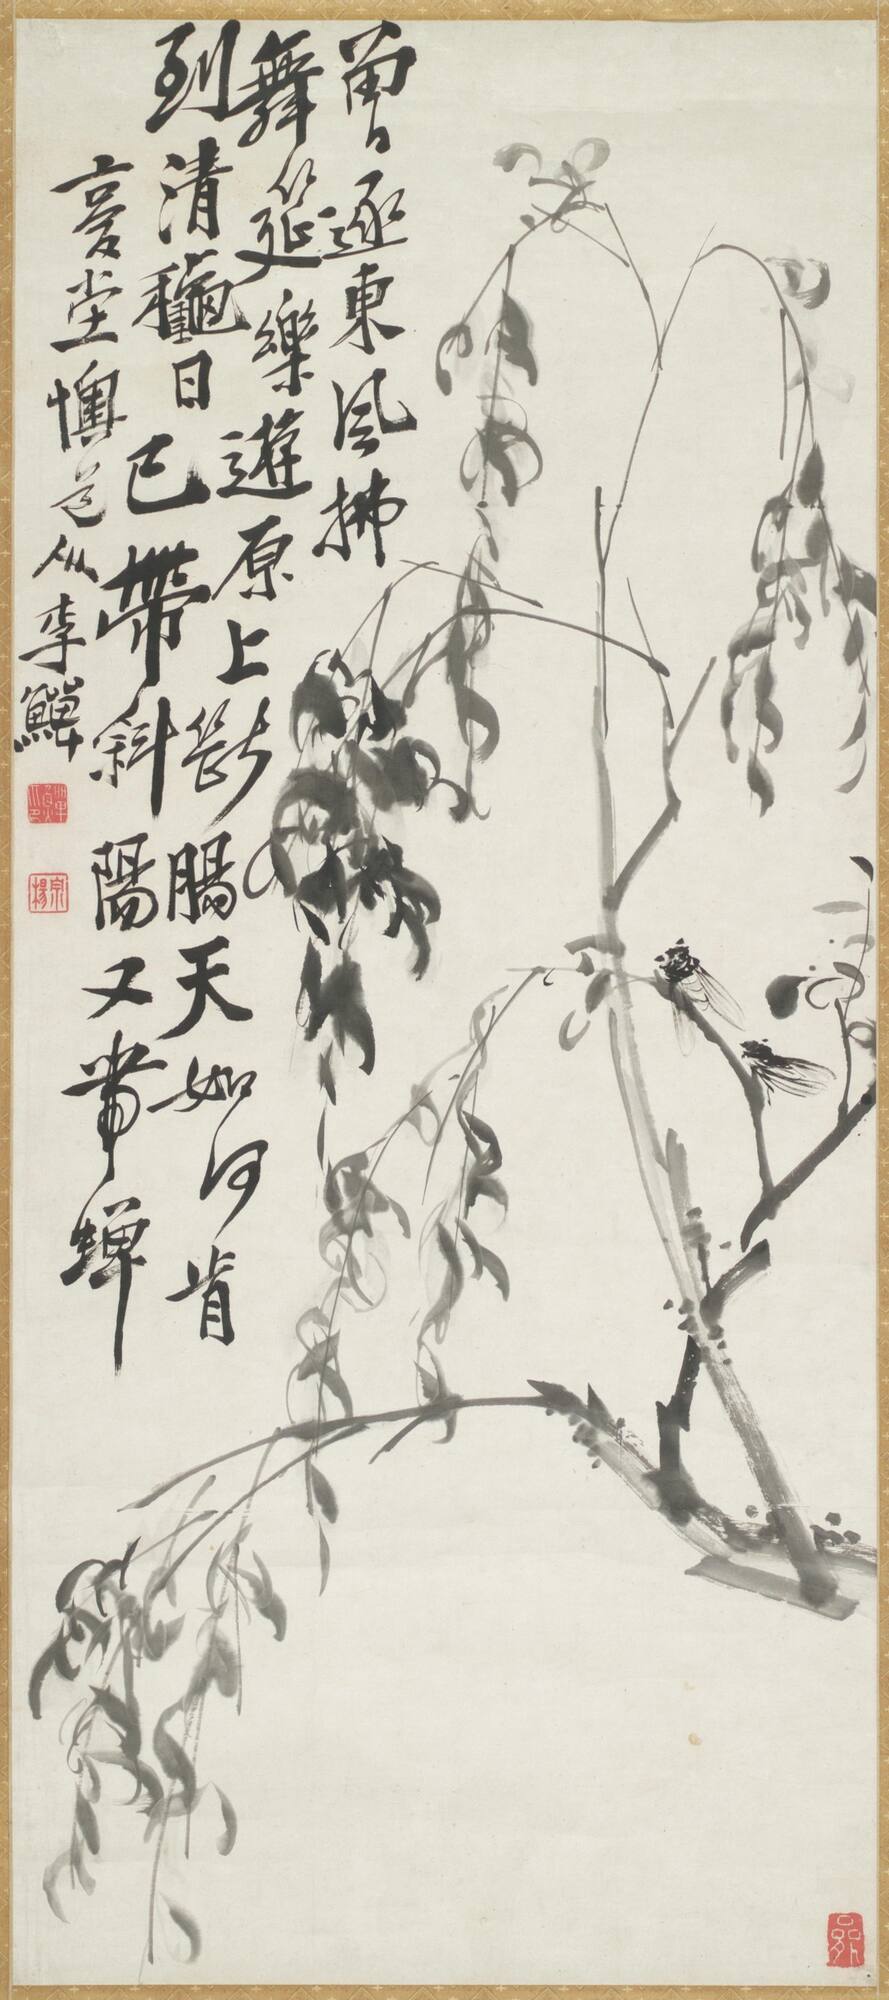 曾逐東風拂
舞筵樂遊原上斷腸天如何肯
到清龝日已帶斜陽又帶蟬
李鱓